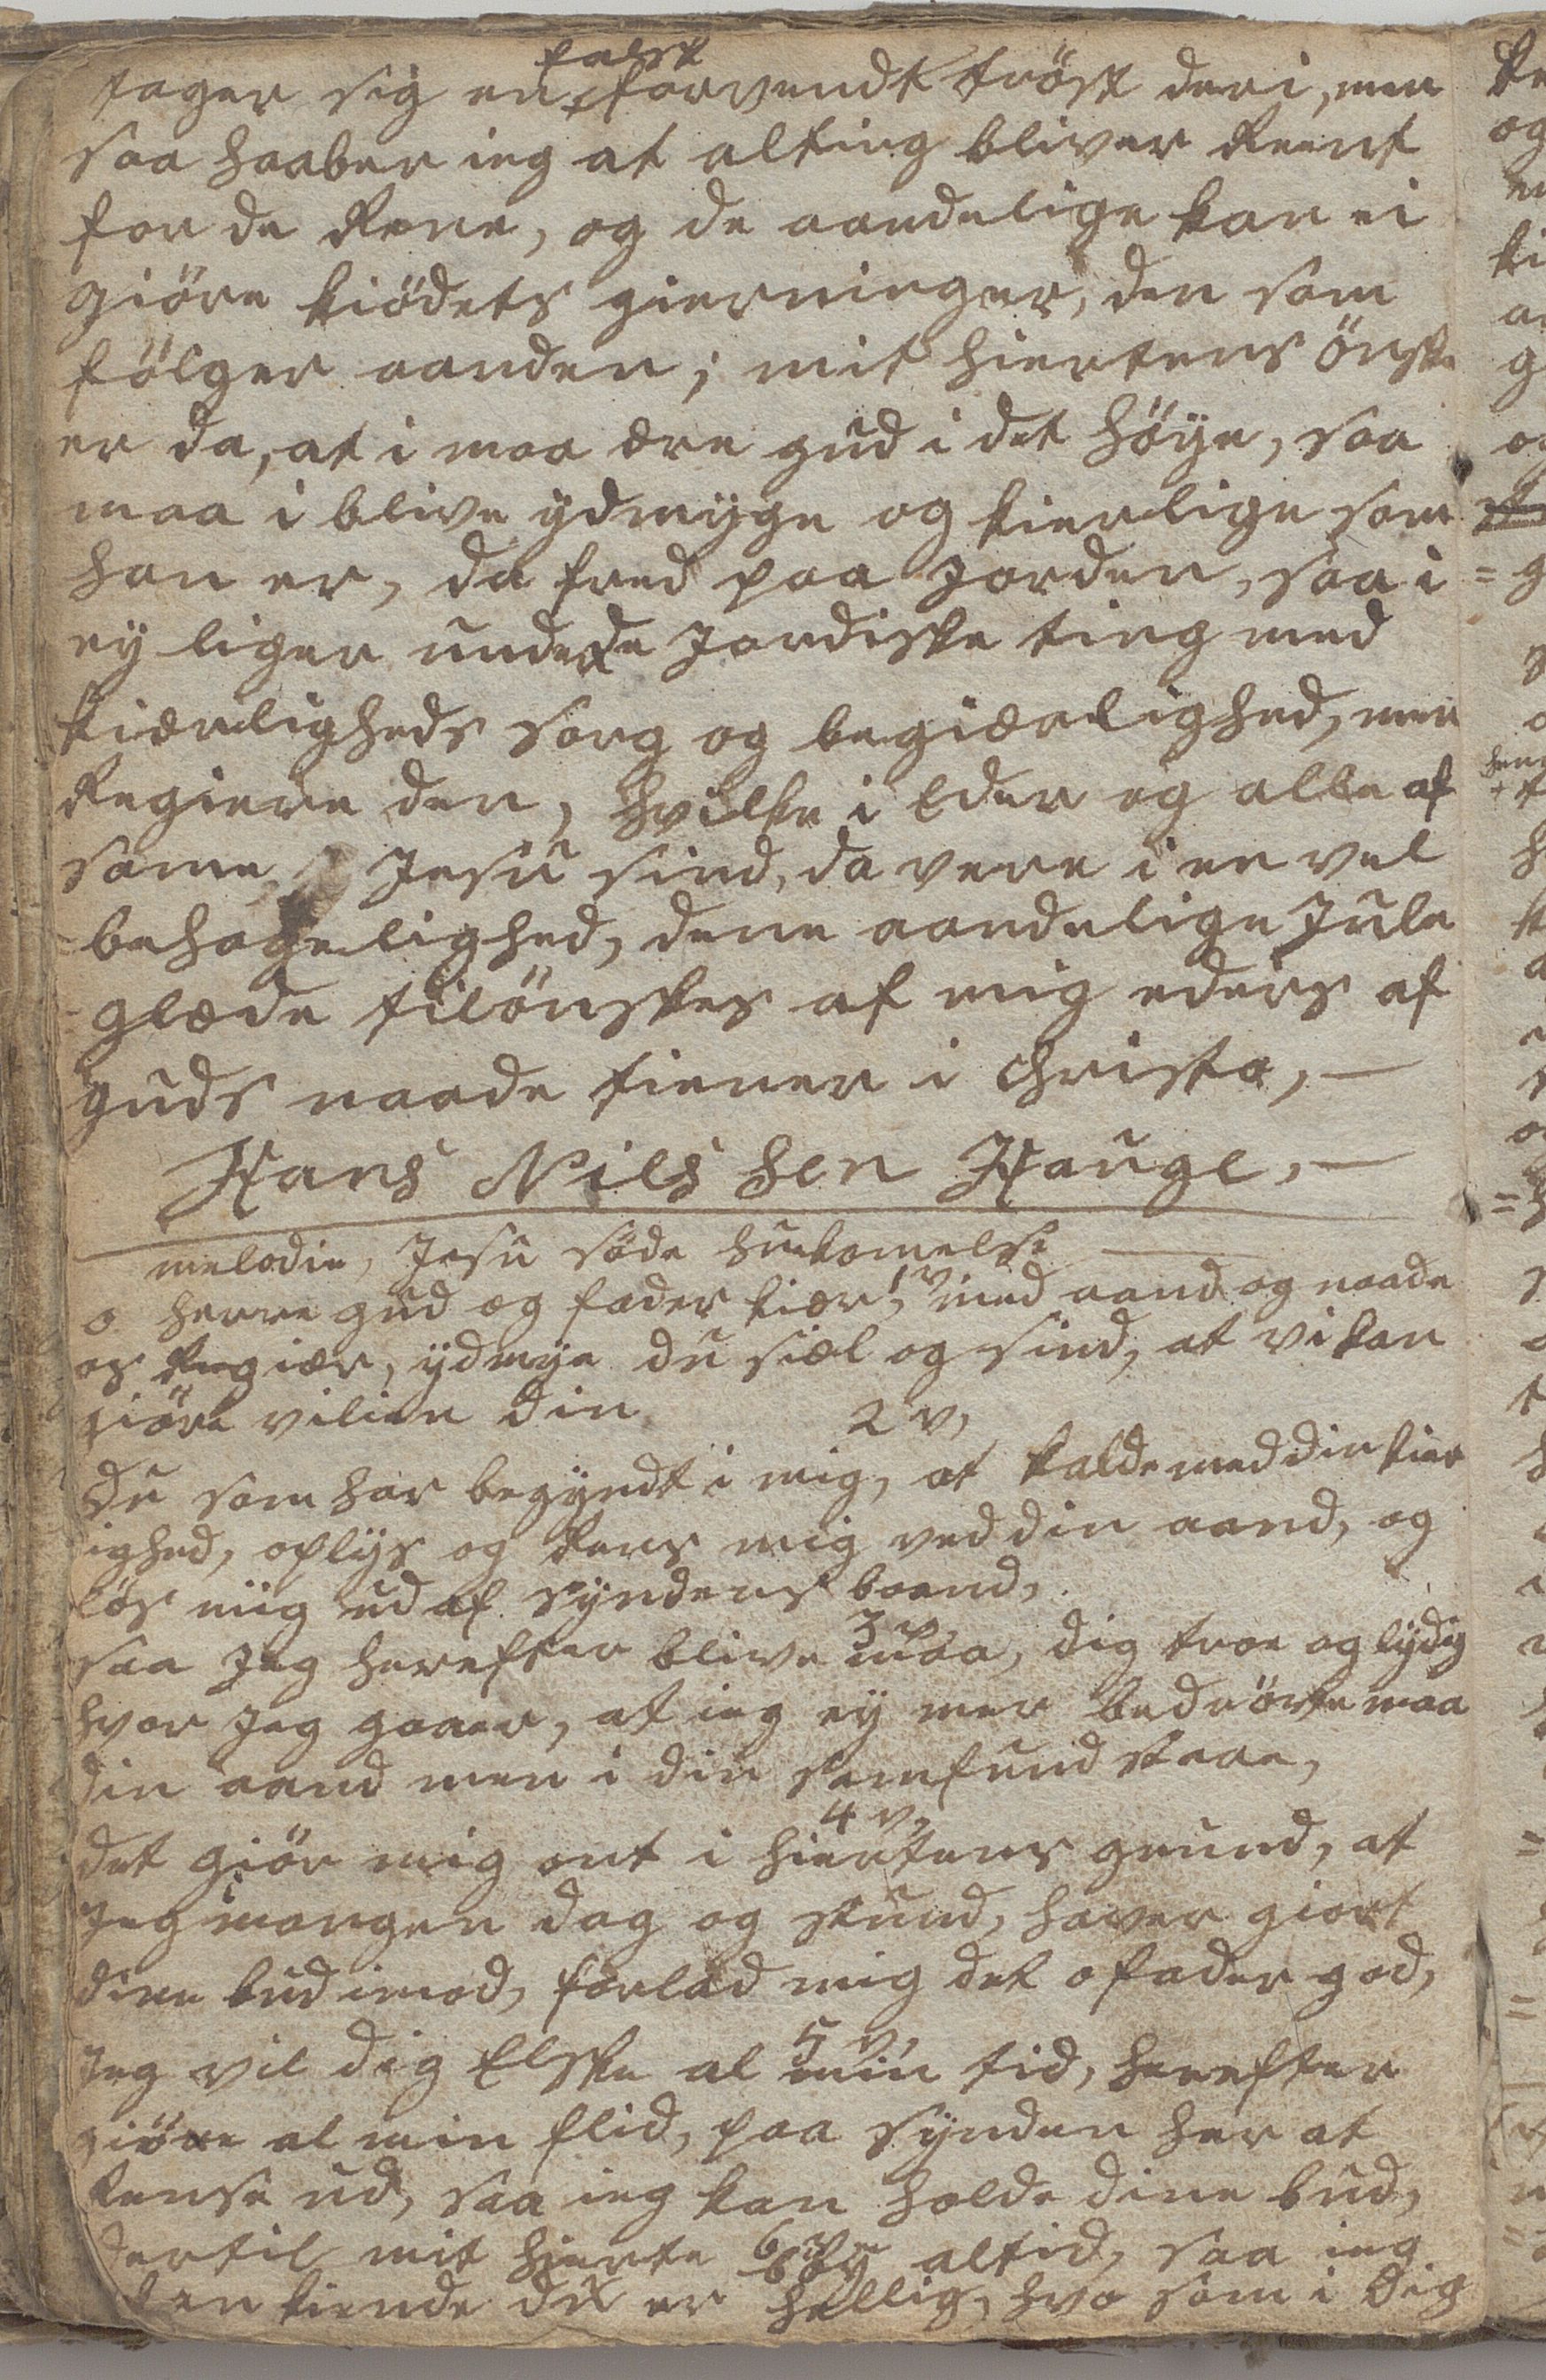 falsk
tager sig en forvendt tröst deri, men
saa haaber ieg at alting bliver Reent
for de Rene, og de aandelige kan ei
giöre kiödets gierninger, den som
fölger aanden; mit hiertens önske
er da, at i maa ære gud i det höye, saa
maa i blive ydmyge og kierlige som
han er, da fred paa Jorden, saa i
ey liger under de Jordiske ting med
kiærligheds sorg og begiærlighed, men
Regiere den, hvilke i Eder og alle af
same Jesu sind, da vere i er vel
behagelighed, dene aandelige Jule
glæde tilönskes af mig eders af
guds naade tiener i Christo, —
Hans Nilssen Hauge, —
melodie, Jesu söde hukomelse
1 v,
o herre gud og fader kiær, med aand og naade
os Regiær, ydmyg du siæl og sind, at vi kan
giöre vilien din
2 v,
Du som har begyndt i mig, at kalde med din kier
ighed, oplys og Rens mig ved din aand, og
lös miig ud af syndens baand,
3 v,
saa Jeg herefter blive maa, dig troe og lydig
hvor Jeg gaaer, at ieg ey mer bedröve maa
din aand men i din samfund staae,
4 v,
det giör mig ont i hiertens grund, at
Jeg mangen dag og stund, haver giort
dine bud imod, forlad mig det o fader god,
5 v,
Jeg vil dig Elske al min tid, herefter
giöre al min flid, paa synden her at
Rense ud, saa ieg kan holde dine bud,
6 v
dertil mit hierte böy altid, saa ieg
kiende du er hellig, hvo som i dig